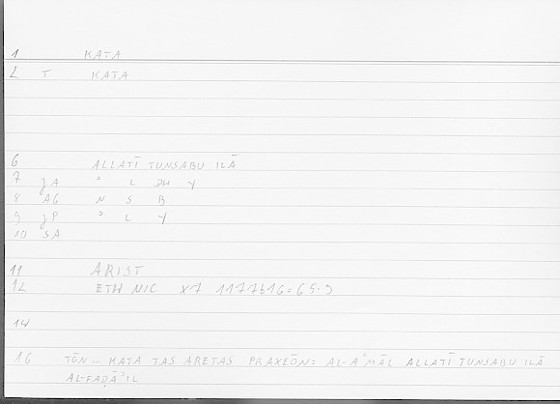 1 KATA
2 T KATA
6 ALLATĪ TUNSABU ILĀ
7 JA ʾ L DH Y
8 AG N S B
9 JP ʾ L Y
10 SA
11 ARIST
12 ETH NIC X7 1177b16=65.9
14
16 TŌN – KATA TAS ARETAS PRAXEŌN: AL-AʿMĀL ALLATĪ TUNSABU ILĀ
AL-FAḌĀʾIL